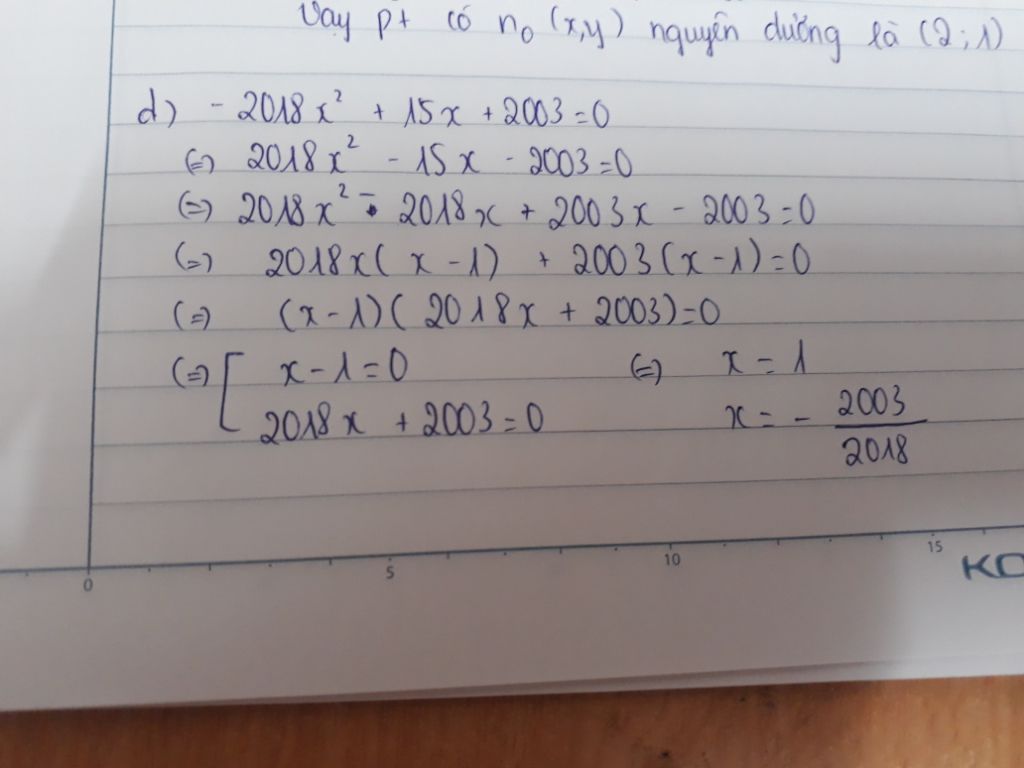 Vay pt có n₀ (x,y) nguyên dương là (2;1)
d) - 2018x² + 15x + 2003=0
(=) 2018x² - 15x - 2003=0
(=) 2018x² - 2018x + 2003x - 2003=0
(=) 2018x( x -1) + 2003(x-1)=0
(=) (x-1)( 2018x + 2003)=0
(=) [ x-1=0 (=) x = 1
2018x + 2003=0 x = - 2003/2018
0 5 10 15